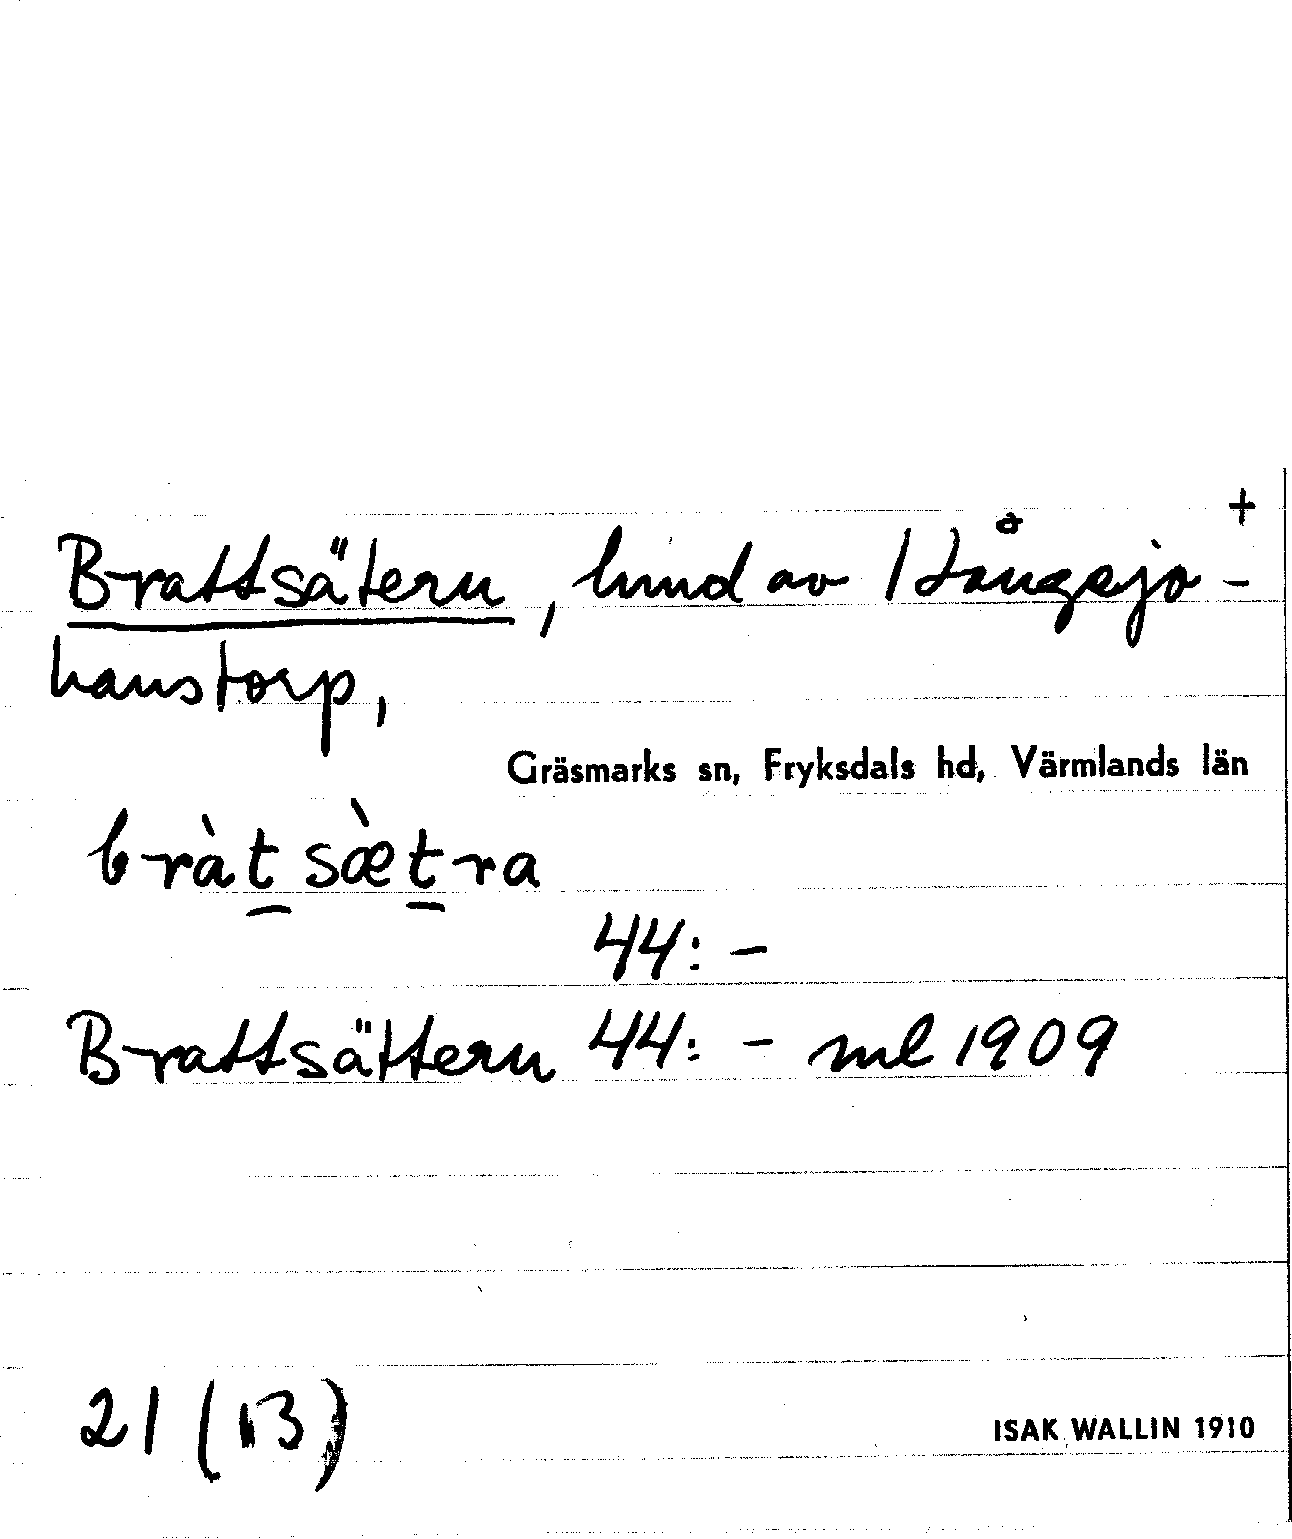 +
Brattsätern, hmd av
hanstorp,
Gräsmarks sn, Fryksdals hd, Värmlands län
bràt̲ sæ̀t̲ra
44: -
Brattsättern 44: - ml 1909
21 (B)
ISAK WALLIN 1910